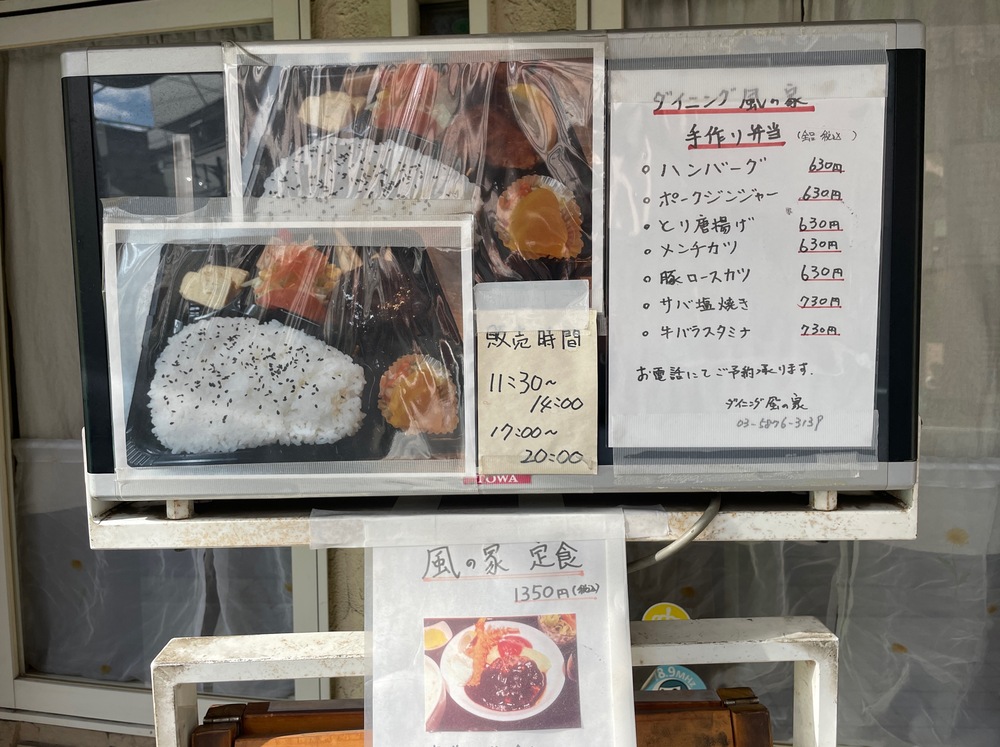 ダイニング 風の家
手作り弁当 (全品 税込)
ハンバーグ 630円
ポークジンジャー 630円
とり唐揚げ 630円
メンチカツ 630円
豚ロースカツ 630円
サバ塩焼き 730円
牛バラスタミナ 730円
お電話にてご予約承ります.
ダイニング 風の家
03-5876-3139
販売時間
11:30~
14:00
17:00~
20:00
TOWA
風の家 定食
1350円(税込)
8.9MHz